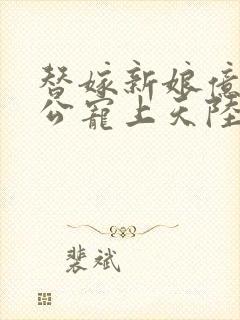 替嫁新娘億
公寵上天陸
裴斌